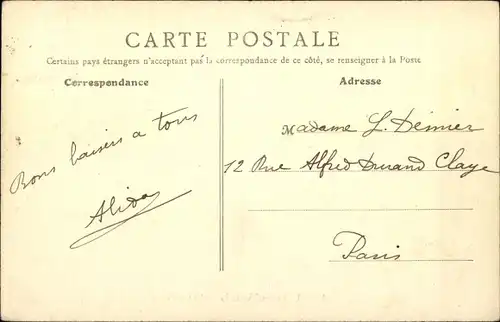 CARTE POSTALE
Certains pays étrangers n'acceptant pas la correspondance de ce côté, se renseigner à la Poste
Correspondance
Bons baisers a tous
Alida
Adresse
Madame L. Demier
12 Rue Alfred Durand Claye
Paris